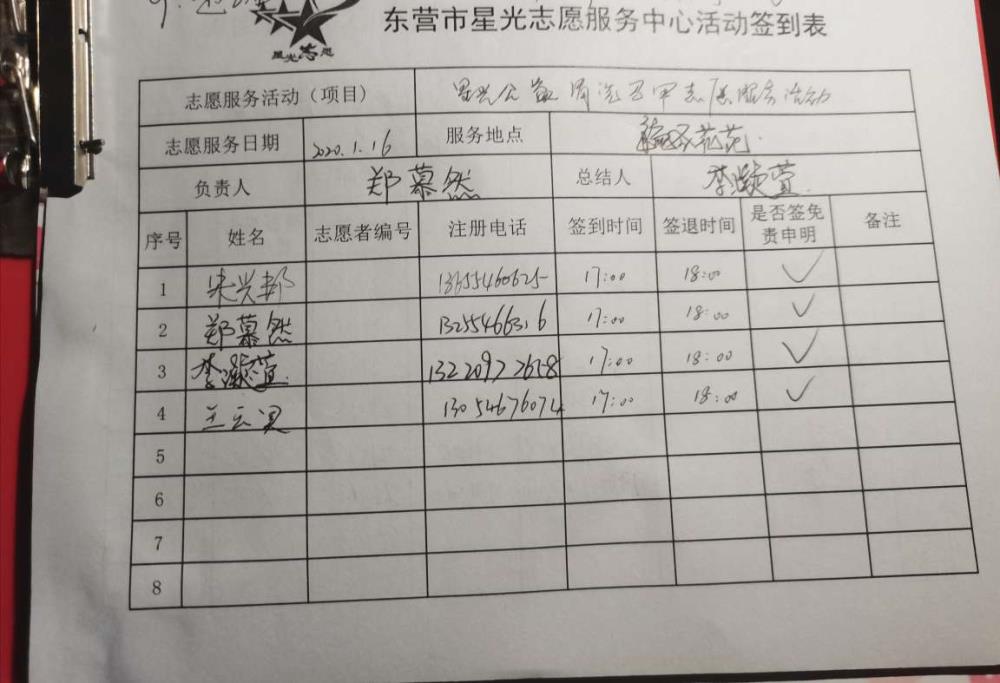 东营市星光志愿服务中心活动签到表
星光志愿
志愿服务活动（项目） 星光公益 志愿服务活动
志愿服务日期 2020.1.16 服务地点
负责人 郑慕然 总结人 李灏萱
序号 姓名 志愿者编号 注册电话 签到时间 签退时间 是否签免责申明 备注
1 宋兴邦 13655460625 17:00 18:00 ✓
2 郑慕然 13255466316 17:00 18:00 ✓
3 李灏萱 13220972658 17:00 18:00 ✓
4 王云灵 13054676074 17:00 18:00 ✓
5
6
7
8